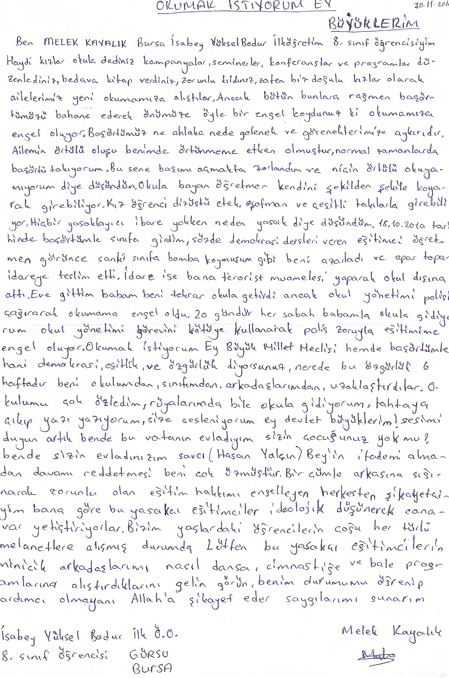 OKUMAK İSTİYORUM EY
BÜYÜKLERİM
Ben MELEK KAYALIK Bursa İsabey Yüksel Bodur İlköğretim 8. sınıf öğrencisiyim
Haydi kızlar okula dediniz kampanyalar, seminerler, konferanslar ve programlar dü-
zenlediniz, bedava kitap verdiniz, zorunlu kıldınız, zaten biz doğulu kızlar olarak
ailelerimiz yeni okumamıza alıştılar, Ancak bütün bunlara rağmen başör-
tümüzü bahane ederek önümüze öyle bir engel koydunuz ki okumamıza
engel oluyor, Başörtümüz ne ahlaka nede gelenek ve göreneklerimize aykırıdır.
Ailemin örtülü oluşu benimde örtünmeme etken olmuştur, normal zamanlarda
başörtü takıyorum. Bu sene başımı açmakta zorlandım ve niçin örtülü okuya-
mıyorum diye düşündüm. Okula bayan öğretmer kendini şekilden şekile koya-
rak girebiliyor. Kız öğrenci dizüstü etek, eşofman ve çeşitli takılarla girebili
yor. Hiçbir yasaklayıcı ibare yokken neden yasak diye düşündüm, 18.10.2010 tari
hinde başörtümle sınıfa girdim, sözde demokrasi dersleri veren eğitimci öğret
men görünce sanki sınıfa bomba koymuşum gibi beni azarladı ve apar topar
idareye teslim etti. İdare ise bana terörist muamelesi yaparak okul dışına
attı. Eve gittim babam beni tekrar okula getirdi ancak okul yönetimi polisi
çağırarak okumama engel oldu. 20 gündür her sabah babamla okula gidiyo
rum okul yönetimi görevini kötüye kullanarak polis zoruyla eğitimime
engel oluyor. Okumak istiyorum Ey Büyük Millet Meclisi hemde başörtümle
hani demokrasi, eşitlik, ve özgürlük diyorsunuz, nerede bu özgürlük 6
haftadır beni okulumdan, sınıfımdan, arkadaşlarımdan, uzaklaştırdılar. O-
kulumu çok özledim, rüyalarımda bile okula gidiyorum, tahtaya
çıkıp yazı yazıyorum, size sesleniyorum ey devlet büyüklerim! sesimi
duyun artık bende bu vatanın evladıyım sizin çocuğunuz yok mu?
bende sizin evladınızım savcı (Hasan Yalçın) Bey'in ifademi alma-
dan davamı reddetmesi beni çok üzmüştür. Bir cümle arkasına sığı-
narak zorunlu olan eğitim hakkımı engelleyen herkesten şikayetçi-
yim bana göre bu yasakçı eğitimciler ideolojik düşünerek cana-
var yetiştiriyorlar. Bizim yaşlardaki öğrencilerin çoğu her türlü
melanetlere alışmış durumda Lütfen bu yasakçı eğitimcilerin
minicik arkadaşlarımı nasıl dansa, cimnastiğe ve bale prog-
amlarına alıştırdıklarını gelin görün, benim durumumu öğrenip
ardımcı olmayanı Allah'a şikayet eder saygılarımı sunarım
İsabey Yüksel Bodur İlk Ö.O.
Melek Kayalık
8. sınıf öğrencisi GÜRSU
BURSA